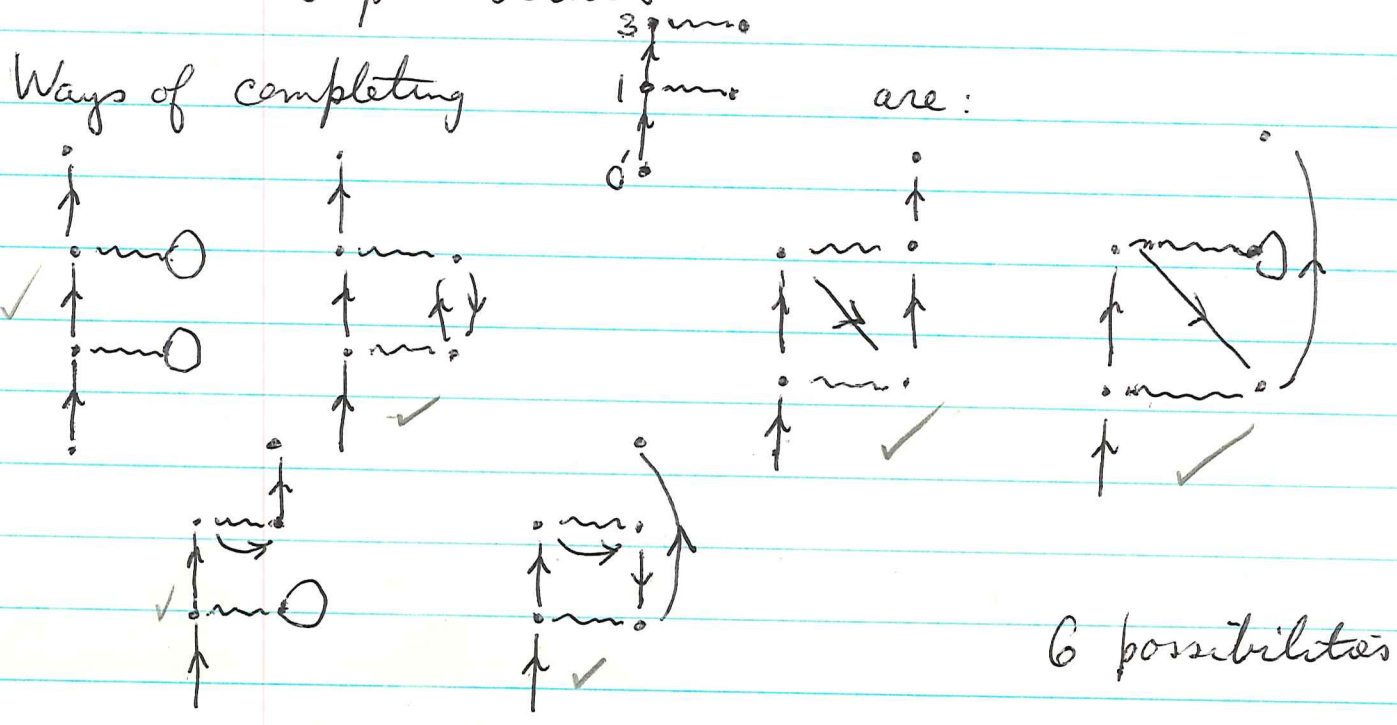 3
Ways of completing 1 are:
0'
6 possibilities